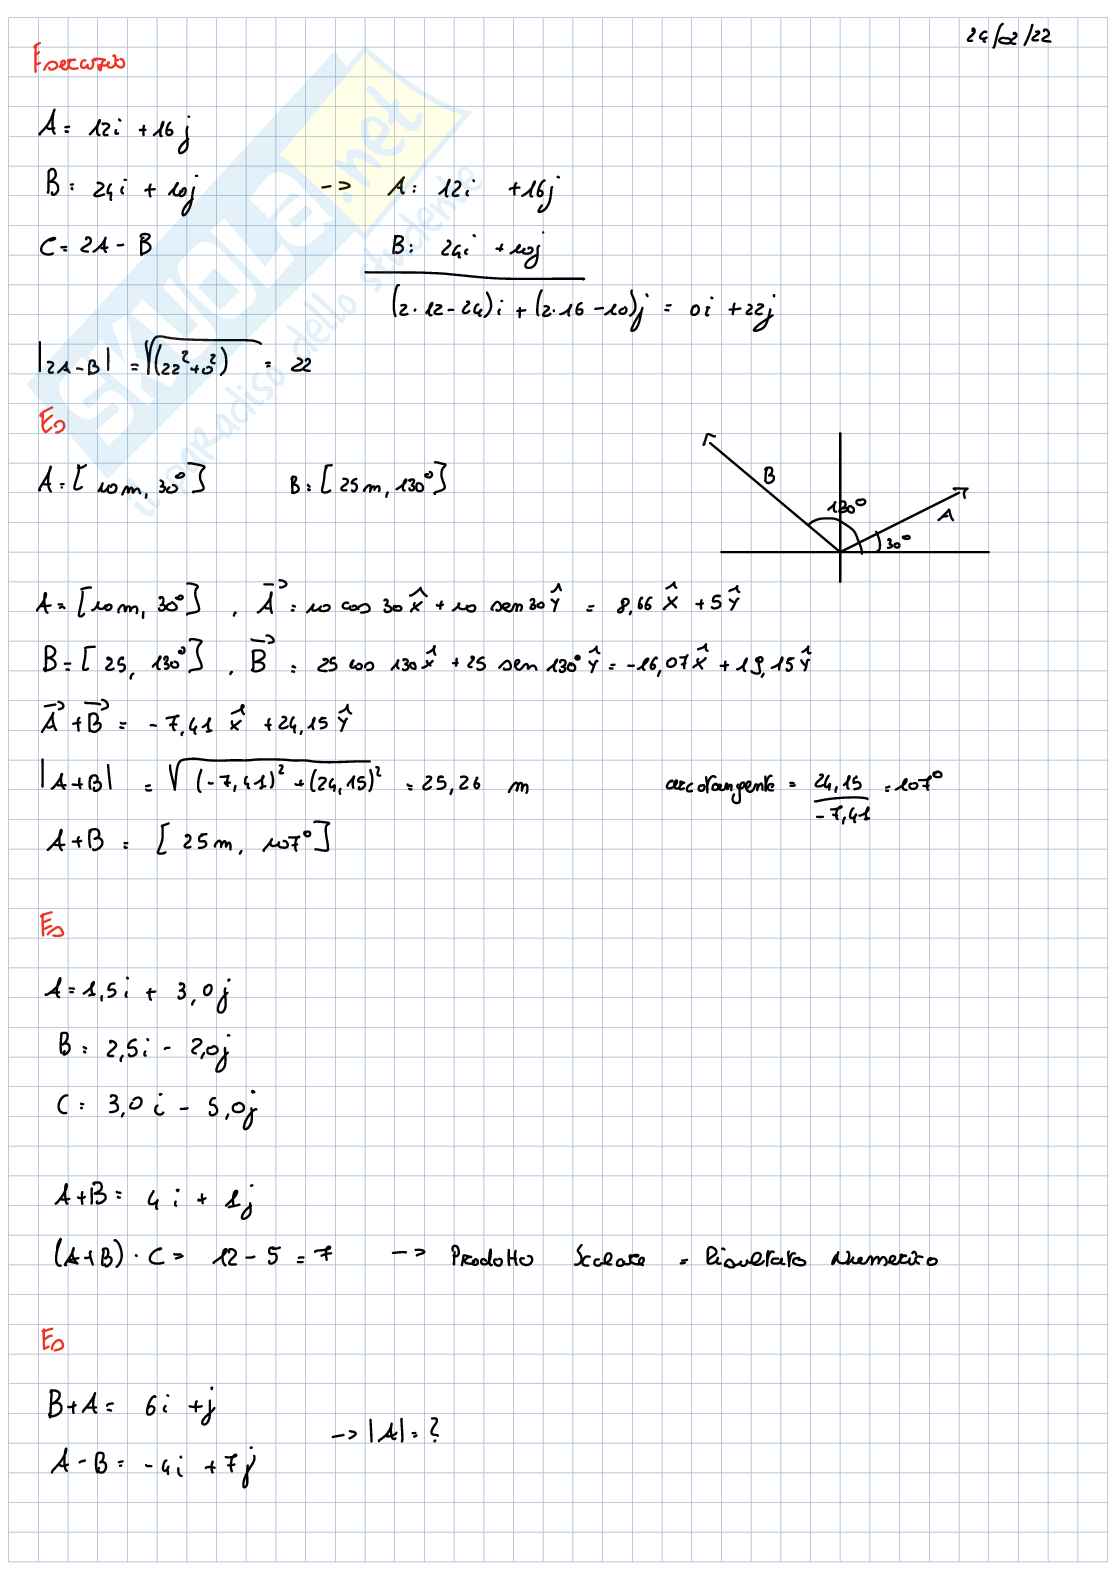 24/02/22
Esercizio
A = 12i + 16j
B = 24i + 10j -> A: 12i + 16j
C = 2A - B B: 24i + 10j
(2·12-24)i + (2·16-10)j = 0i + 22j
|2A-B| = √(22²+0²) = 22
Es
A = [10m, 30°] B = [25m, 130°]
B
130°
A
30°
A = [10m, 30°] , A⃗ = 10 cos 30 x̂ + 10 sen 30 ŷ = 8,66 x̂ + 5 ŷ
B = [25, 130°] , B⃗ = 25 cos 130 x̂ + 25 sen 130° ŷ = -16,07 x̂ + 19,15 ŷ
A⃗ + B⃗ = -7,41 x̂ + 24,15 ŷ
|A+B| = √(-7,41)² + (24,15)² = 25,26 m arcotangente = 24,15 / -7,41 = 107°
A+B = [25m, 107°]
Es
A = 1,5i + 3,0j
B = 2,5i - 2,0j
C = 3,0i - 5,0j
A+B = 4i + 1j
(A+B) · C = 12 - 5 = 7 -> Prodotto Scalare = Risultato Numerico
Es
B+A = 6i + j
-> |A| = ?
A-B = -4i + 7j
SKUOLA.net
il paradiso dello studente